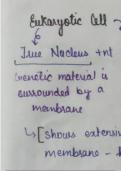 Eukaryotic Cell
True Nucleus +nt
Genetic material is
surrounded by a
membrane
[shows extensi
membrane -